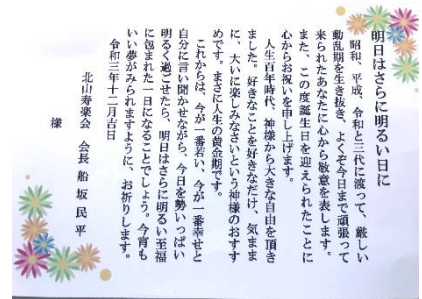 明日はさらに明るい日に
昭和、平成、令和と三代に渡って、厳しい
動乱期を生き抜き、よくぞ今日まで頑張って
来られたあなたに心から敬意を表します。
また、この度誕生日を迎えられたことに
心からお祝いを申し上げます。
人生百年時代、神様から大きな自由を頂き
ました。好きなことを好きなだけ、気まま
に、大いに楽しみなさいという神様のおすす
めです。まさに人生の黄金期です。
これからは、今が一番若い、今が一番幸せと
自分に言い聞かせながら、今日を勢いっぱい
明るく過ごせたら、明日はさらに明るい至福
に包まれた一日になることでしょう。今宵も
いい夢がみられますように、お祈りします。
令和三年十二月吉日
北山寿楽会 会長 船坂民平
様